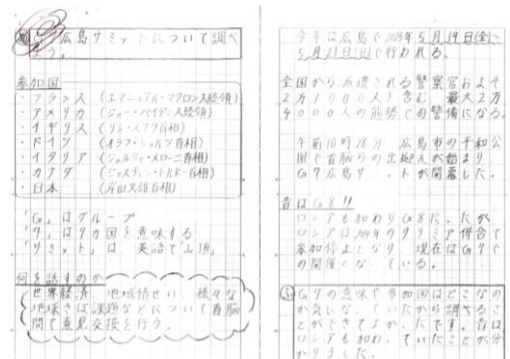 広島サミットについて調べ
よう。
参加国
・フランス (エマニュエル・マクロン大統領)
・アメリカ (ジョー・バイデン大統領)
・イギリス (リシ・スナク首相)
・ドイツ (オラフ・ショルツ首相)
・イタリア (ジョルジャ・メローニ首相)
・カナダ (ジャスティン・トルドー首相)
・日本 (岸田文雄首相)
「G」はグループ
「7」は7カ国を意味する
「サミット」は、英語で「山頂」
何を話すのか
世界経済、地域情せい、様々な
地球きぼ課題などについて首脳
間で意見交換を行う。
今年は広島で2023年5月19日(金)~
5月21日(日)で行われる。
全国から派遣される警察官およそ
2万1000人を含む、最大2万
4000人の態勢での警備になる。
午前10時28分、広島市の平和公
園で首脳らの出迎えが始まり、
G7広島サミットが開幕した。
昔はG8!!
ロシアも加わりG8だったが
ロシアは2014年のクリミア併合で
参加停止となり、現在はG7で
の開催となっている。
G7の意味や参加国はどこなの
か気になっていたから調べるこ
とができてよかったです。昔は
ロシアも加わっていたことが分
かりました。